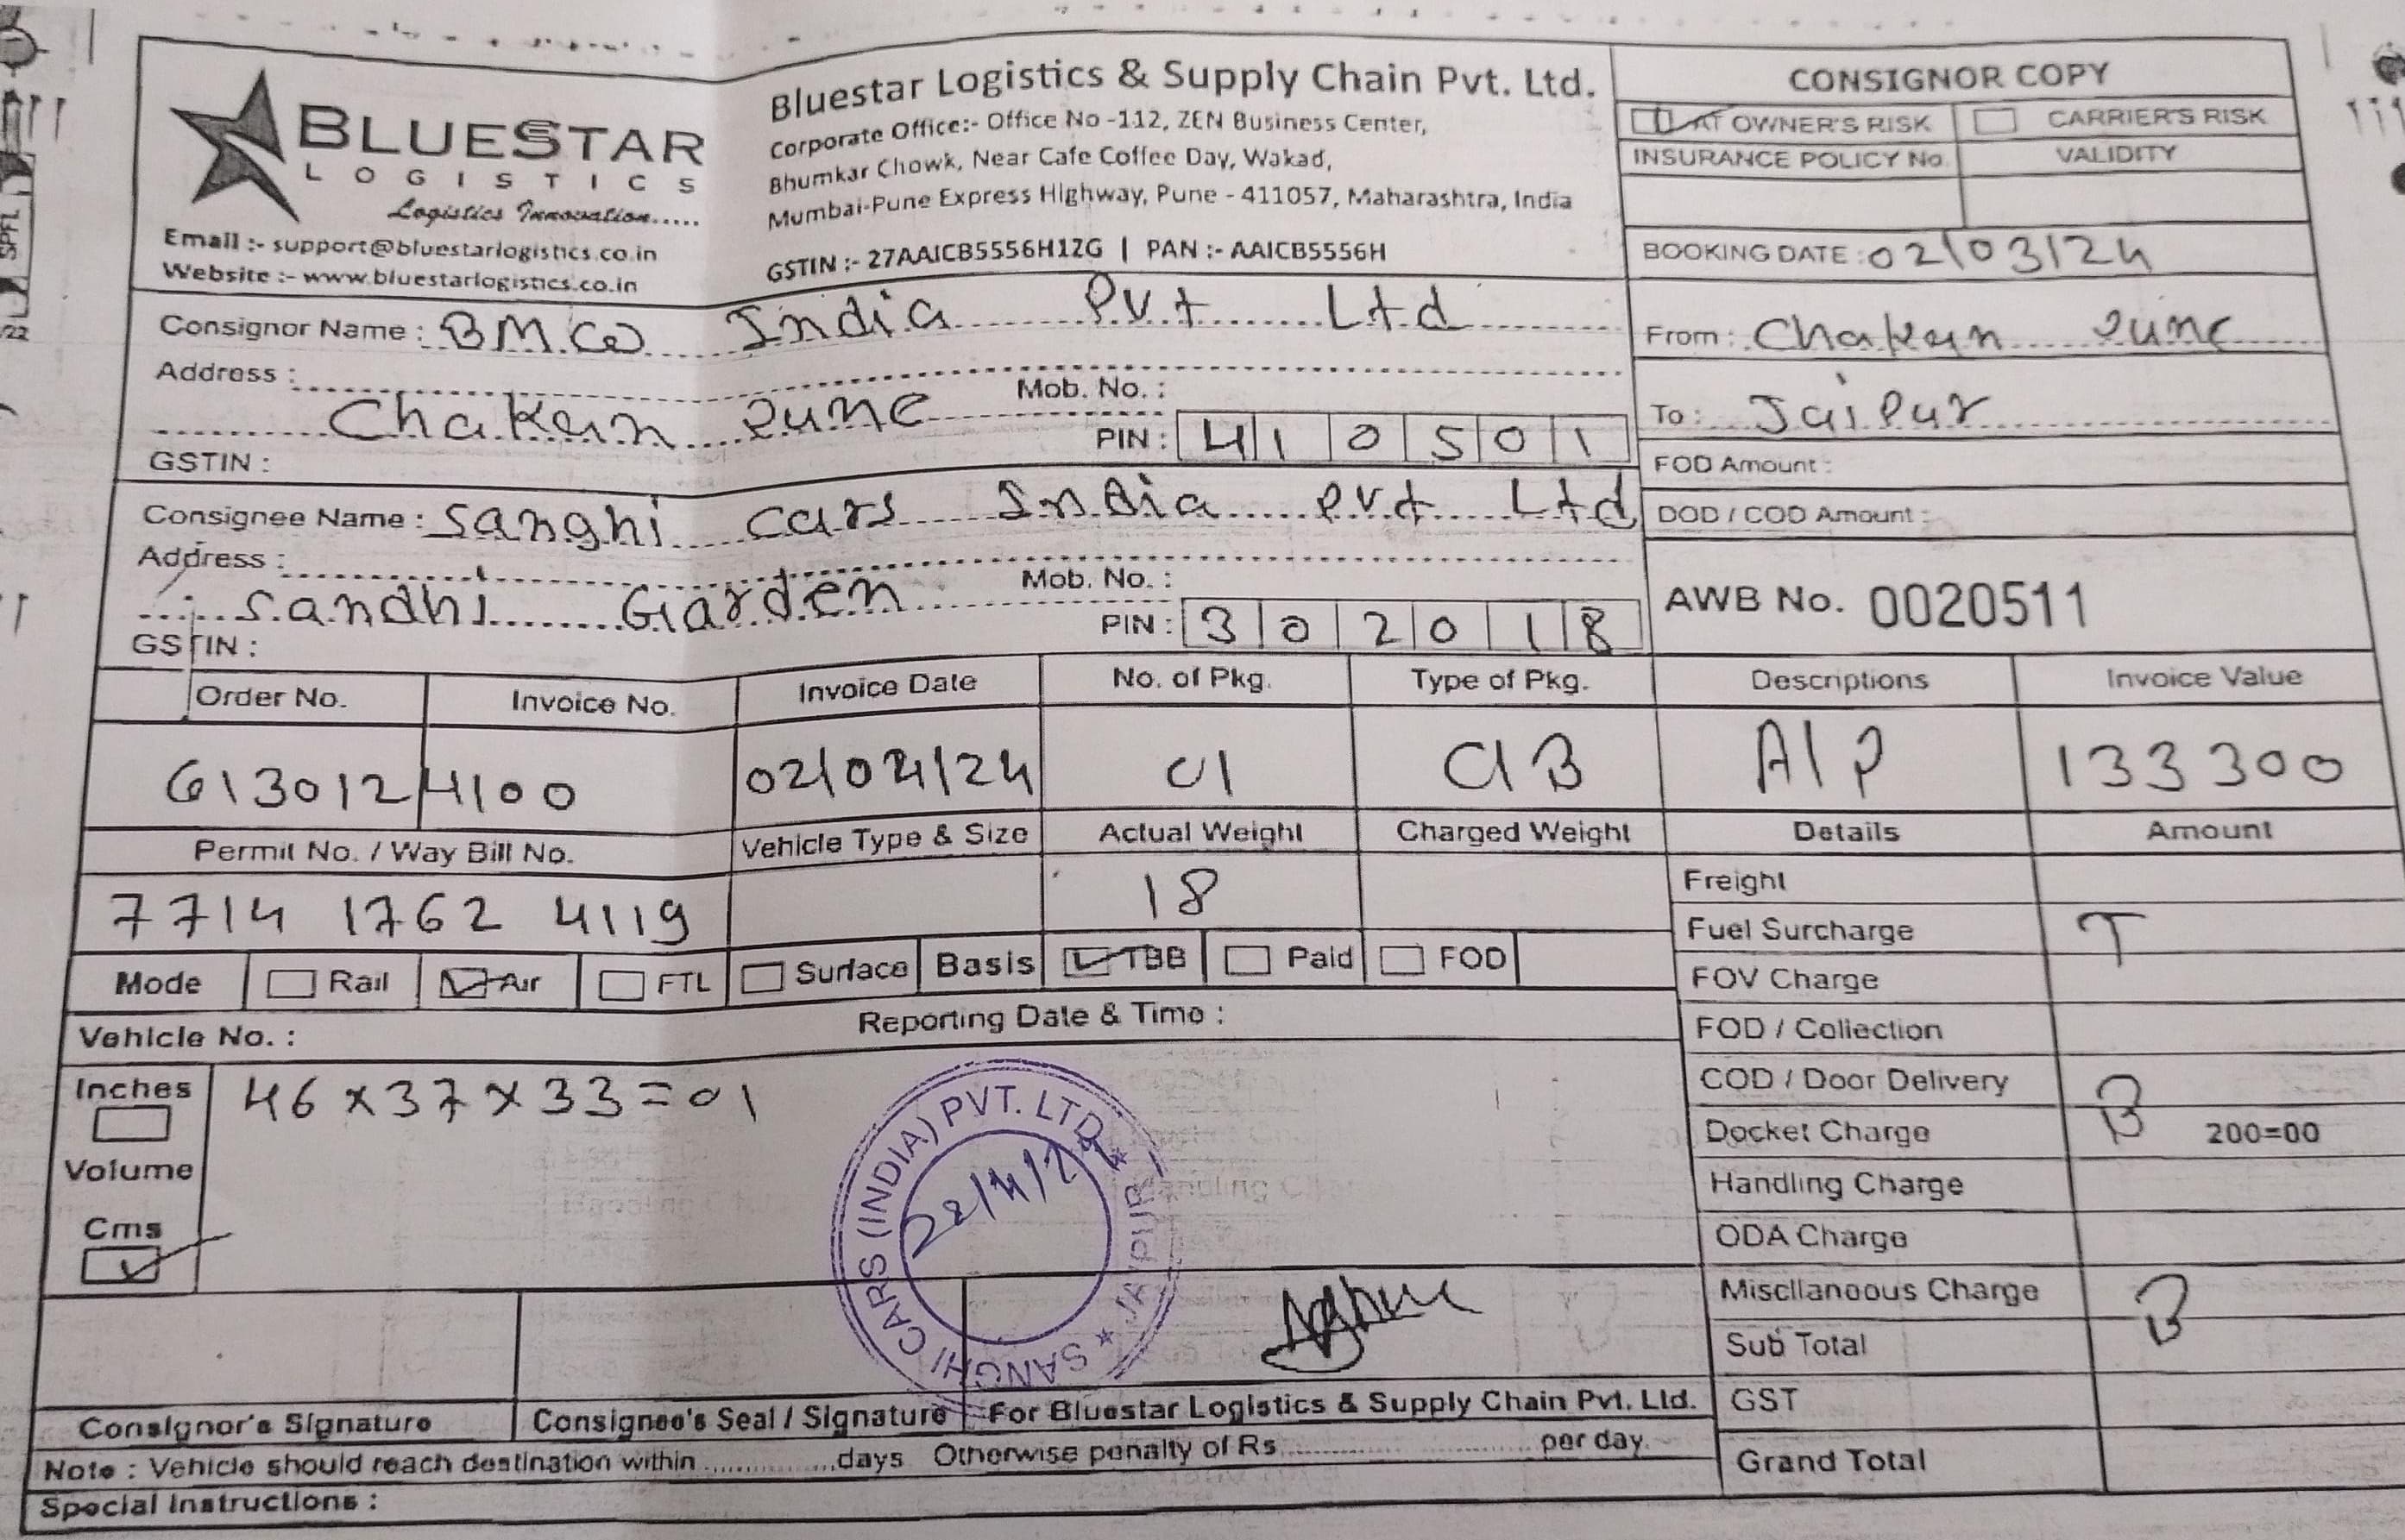 BLUESTAR
LOGISTICS
Logistics Innovation.....
Email :- support@bluestarlogistics.co.in
Website :- www.bluestarlogistics.co.in
Bluestar Logistics & Supply Chain Pvt. Ltd.
Corporate Office:- Office No -112, ZEN Business Center,
Bhumkar Chowk, Near Cafe Coffee Day, Wakad,
Mumbai-Pune Express Highway, Pune - 411057, Maharashtra, India
GSTIN :- 27AAICB5556H1ZG | PAN :- AAICB5556H
CONSIGNOR COPY
AT OWNER'S RISK CARRIER'S RISK
INSURANCE POLICY No. VALIDITY
BOOKING DATE : 02/03/24
Consignor Name : BMW India Pvt Ltd
From : Chakan Pune
Address :
Chakan Pune Mob. No. :
To : Jaipur
PIN : 410501
GSTIN :
FOD Amount :
Consignee Name : Sanghi Cars India Pvt Ltd
DOD / COD Amount :
Address :
Sandhi Garden Mob. No. :
PIN : 302018
AWB No. 0020511
GSTIN :
Order No. Invoice No. Invoice Date No. of Pkg. Type of Pkg. Descriptions Invoice Value
6130124100 01 CIB AIP 133300
Permit No. / Way Bill No. Vehicle Type & Size Actual Weight Charged Weight Details Amount
7714 1762 4119 18
Freight
Fuel Surcharge T
Mode Rail Air FTL Surface Basis TBB Paid FOD
FOV Charge
Vehicle No. : Reporting Date & Time :
FOD / Collection
Inches 46 x 37 x 33 = 01
COD / Door Delivery B
Docket Charge 200=00
Volume
Handling Charge
Cms
ODA Charge
SANGHI CARS (INDIA) PVT. LTD. ★ JAIPUR ★
Miscllaneous Charge B
Sub Total
GST
Grand Total
Consignor's Signature Consignee's Seal / Signature For Bluestar Logistics & Supply Chain Pvt. Ltd.
Note : Vehicle should reach destination within .............days Otherwise penalty of Rs ............................ per day.
Special Instructions :